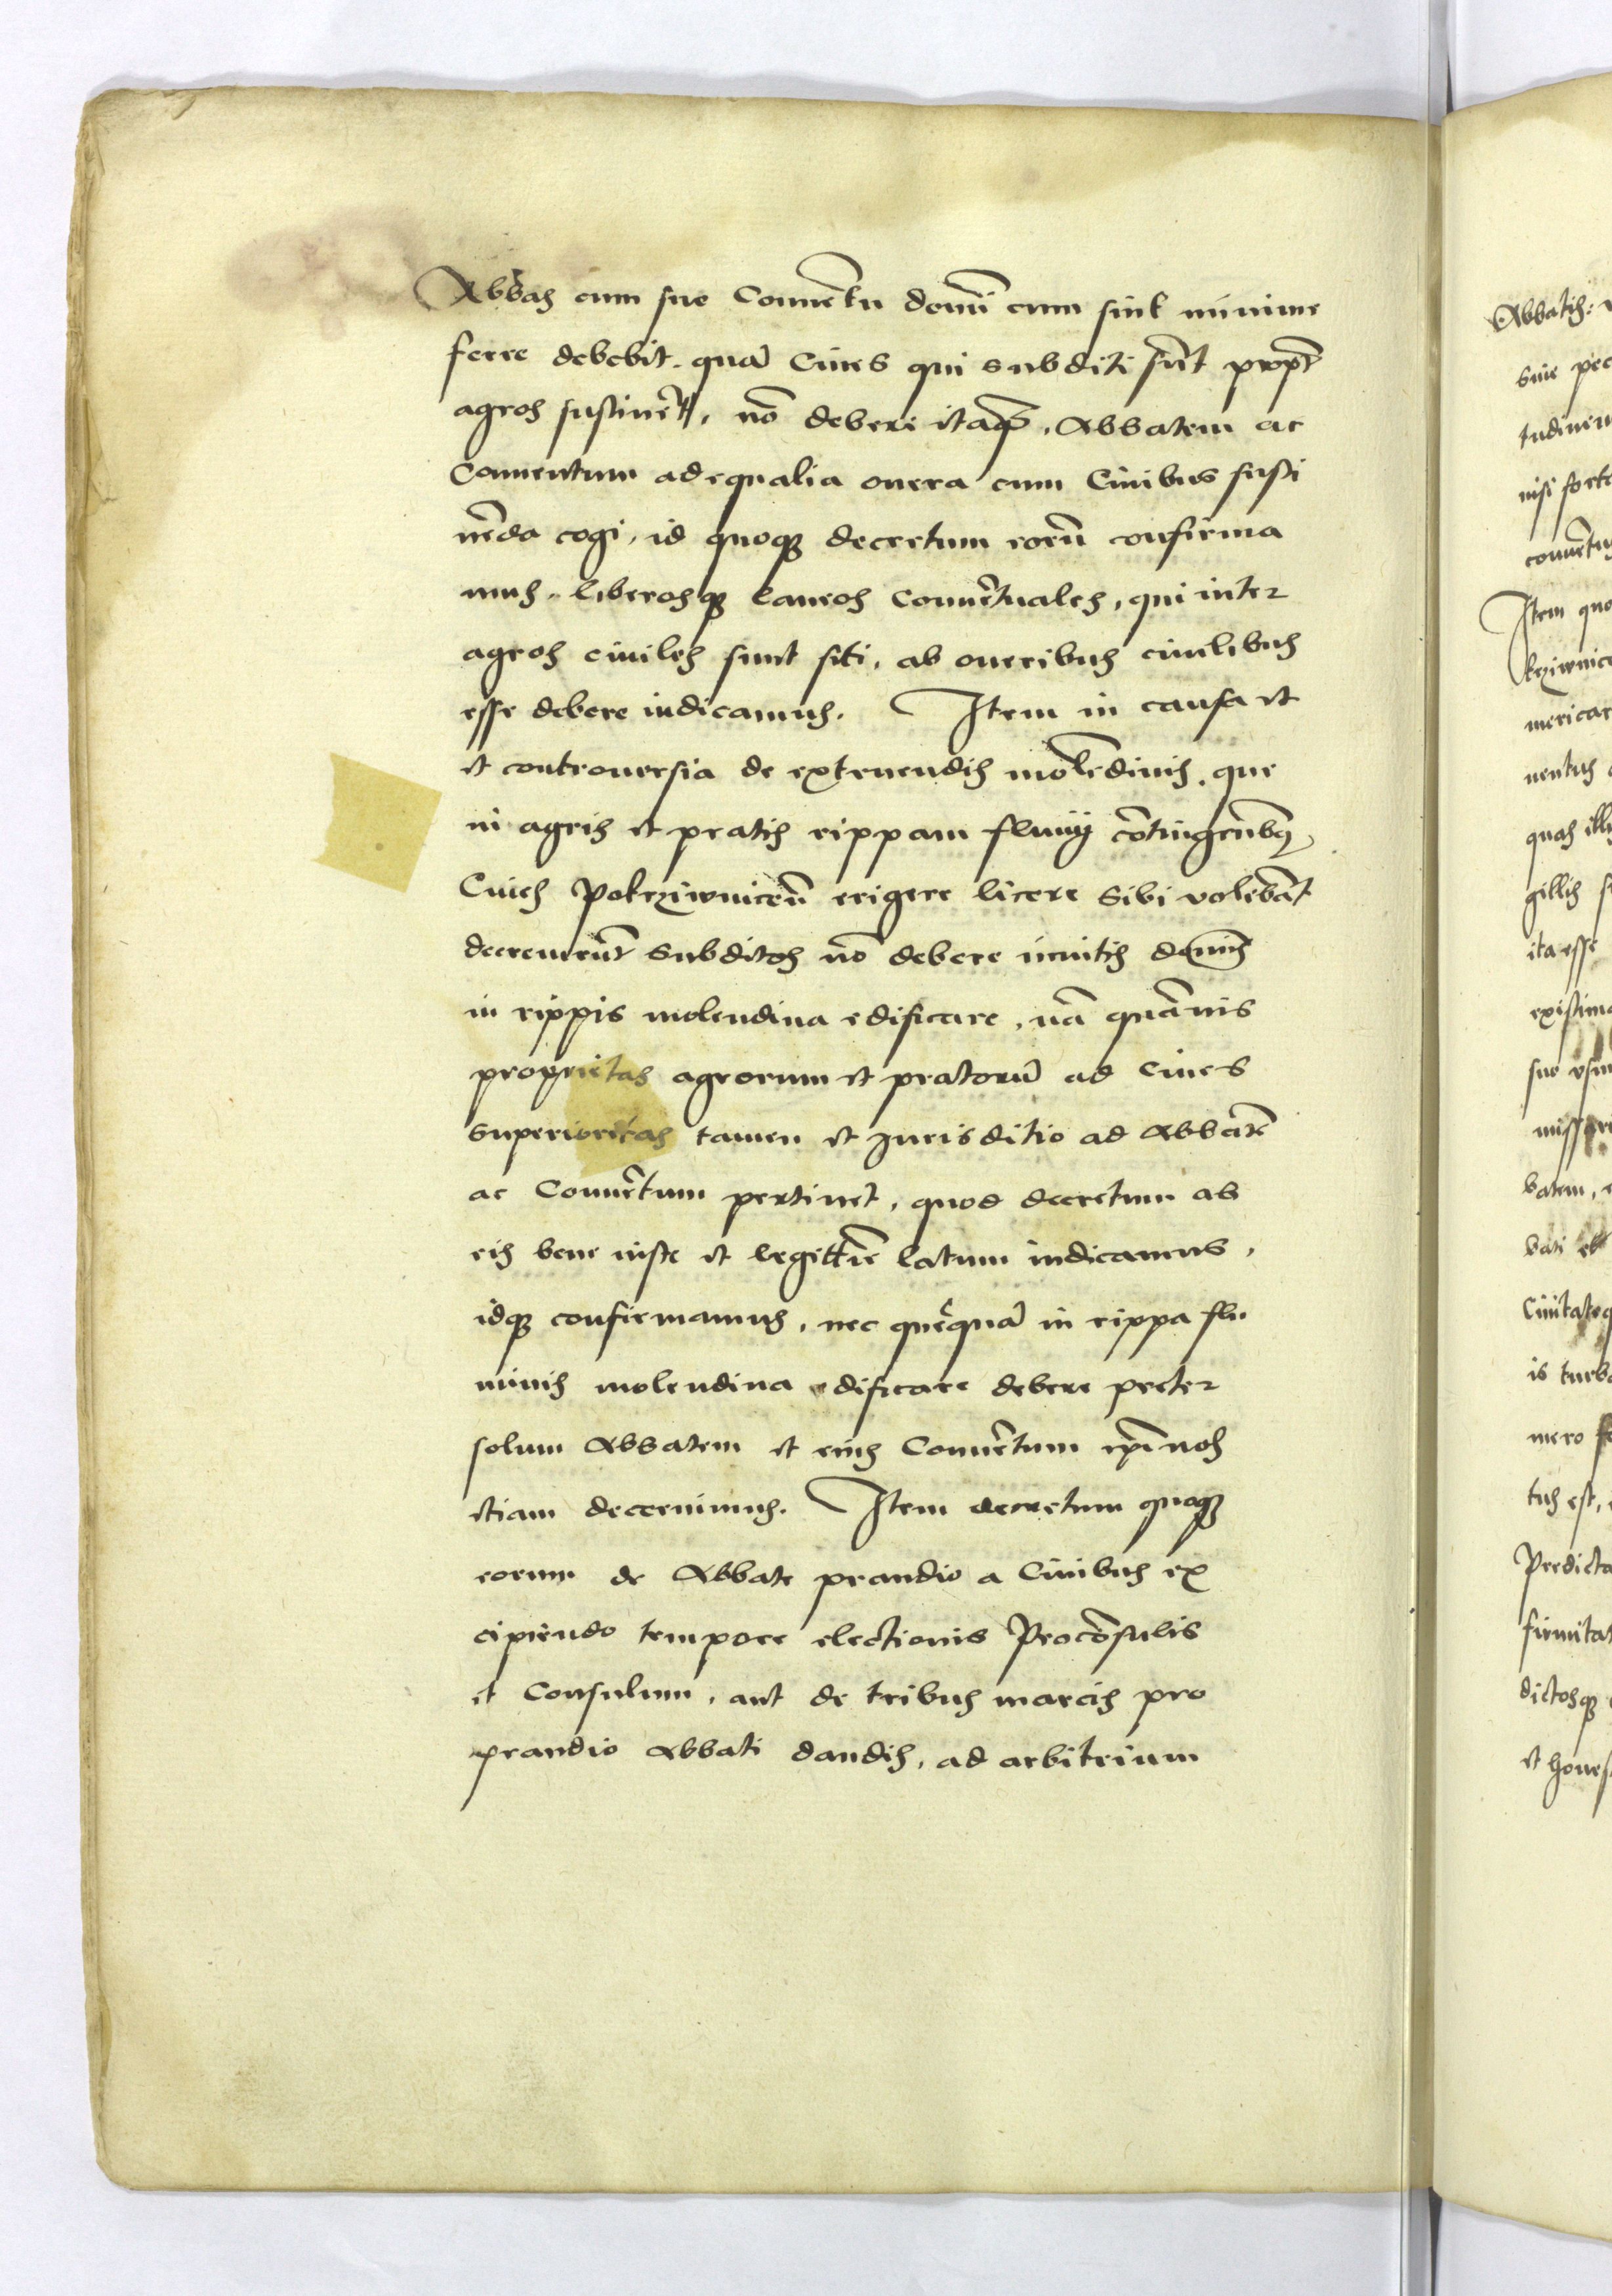 Abbas cum suo Conuētu domī cum sint minime
ferre debebit. quā Ciues qui subditi sūt propt̄
agros sustinēt, nō deberi itaqꝫ, Abbatem ac
Conuentum ad equalia onera cum Ciuibus susti
nēda cogi, id quoqꝫ decretum eorū confirma
mus. liberosqꝫ laneos Conuētuales, qui inter
agros ciuiles sunt siti, ab oneribus ciuilibus
esse debere iudicamus. Item in causa et
et controuersia de extruendis molēdinis, que
in agris et pratis rippam fluuij cōtingētibꝫ
Ciues Pokrziwniceñ erigere licere sibi volebāt
decreuerūt subditos nō debere inuitis dominis
in rippis molendina edificare, nā quāuis
proprietas agrorum et pratorū ad Ciues
superioritas tamen et Jurisditio ad Abbatē
ac Conuētum pertinet, quod decretum ab
eis bene iuste et legittīe latum iudicamus,
idqꝫ confirmamus, nec quēquā in rippa flu
minis molendina edificare debere preter
solum Abbatem et eius Conuētum ip̄i nos
etiam decernimus. Item decretum quoqꝫ
eorum de Abbate prandio a Ciuibus ex
cipiendo tempore electionis Procōsulis
et Consulum, aut de tribus marcis pro
prandio Abbati dandis, ad arbitrium
Abbatis:
siue pec
tudinem
nisi forte
conuētus
Item quo
krziwnice
mericar
uentus
quas ill
gillis s
ita esse
existima
suo vsu
batem,
bati et
Ciuitateq
is turba
mero fo
tus est,
Predicta
firmitat
dictosqꝫ
et hones